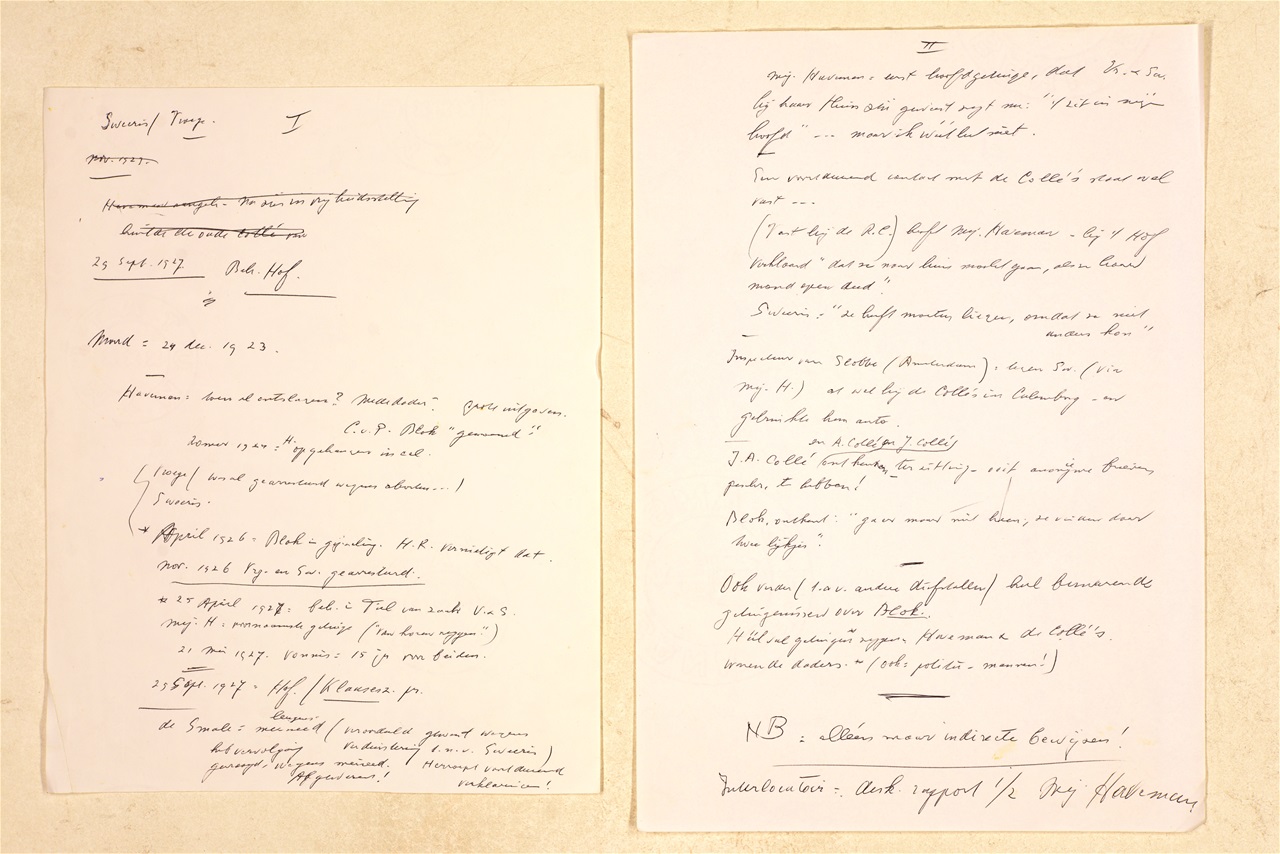 I
Sweeris / Troge.
nov. 1927.
Haveman - na zijn in vrijheidsstelling
de oude Collé
29 Sept. 1927. Beh. Hof.
Moord = 24 dec. 1923.
Haveman = toen al ontslagen? Mededader? grote uitgaven.
C.v.P. Blok "genoemd"
Zomer 1924 = H. opgehangen in cel.
Troge (was al gearresteerd wegens abortus...)
Sweeris.
* April 1926 = Blok in gijzeling. H.R. vernietigt dat.
nov. 1926 Vrg. en Sw. gearresteerd.
* 25 April 1927 = beh. in Tiel van zaak V. & S.
Mej. H = voornaamste getuige ("van horen zeggen")
21 mei 1927. Vonnis = 15 jr voor beiden.
29 Sept. 1927 = Hof. / Klaasesz. pr.
leugens
de Smale = meineed (veroordeeld geweest wegens
het vervolging verduistering t.n.v. Sweeris)
wegens meineed. Herroept voortdurend
verklaringen!
II
Mej. Haveman = eerst hoofdgetuige, dat Vr. & Sw.
bij haar thuis zijn geweest zegt nu: "'t zit in mijn
hoofd" --- maar ik wéét het niet.
Een voortdurend contact met de Collé's staat wel
vast ---
(Tost bij de R.C.) heeft Mej. Haveman - bij 't Hof
verklaard "dat ze naar huis mocht gaan, als ze haar
mond open deed".
Sweeris = "ze heeft moeten liegen, omdat ze niet
anders kon"
Inspecteur van Slobbe (Amsterdam) = tegen Sw. (via
Mej. H.) at wel bij de Collé's in Culemborg - en
gebruikte hun auto.
en A. Collé en J. Collé
J.A. Collé ontkennen ter zitting - ooit anonieme brieven
geschr. te hebben!
Blok, ontkent: "ga er maar niet heen, ze vinden daar
twee lijkjes".
Ook verder (t.a.v. andere diefstallen) heel bezwarende
getuigenissen over Blok.
Heel veel getuigen zeggen Haveman & de Collé's
waren de daders. (ook = politie-mannen!)
NB = alléén maar indirecte bewijzen!
Interlocutoir = desk. rapport 1/2 Mej Haveman